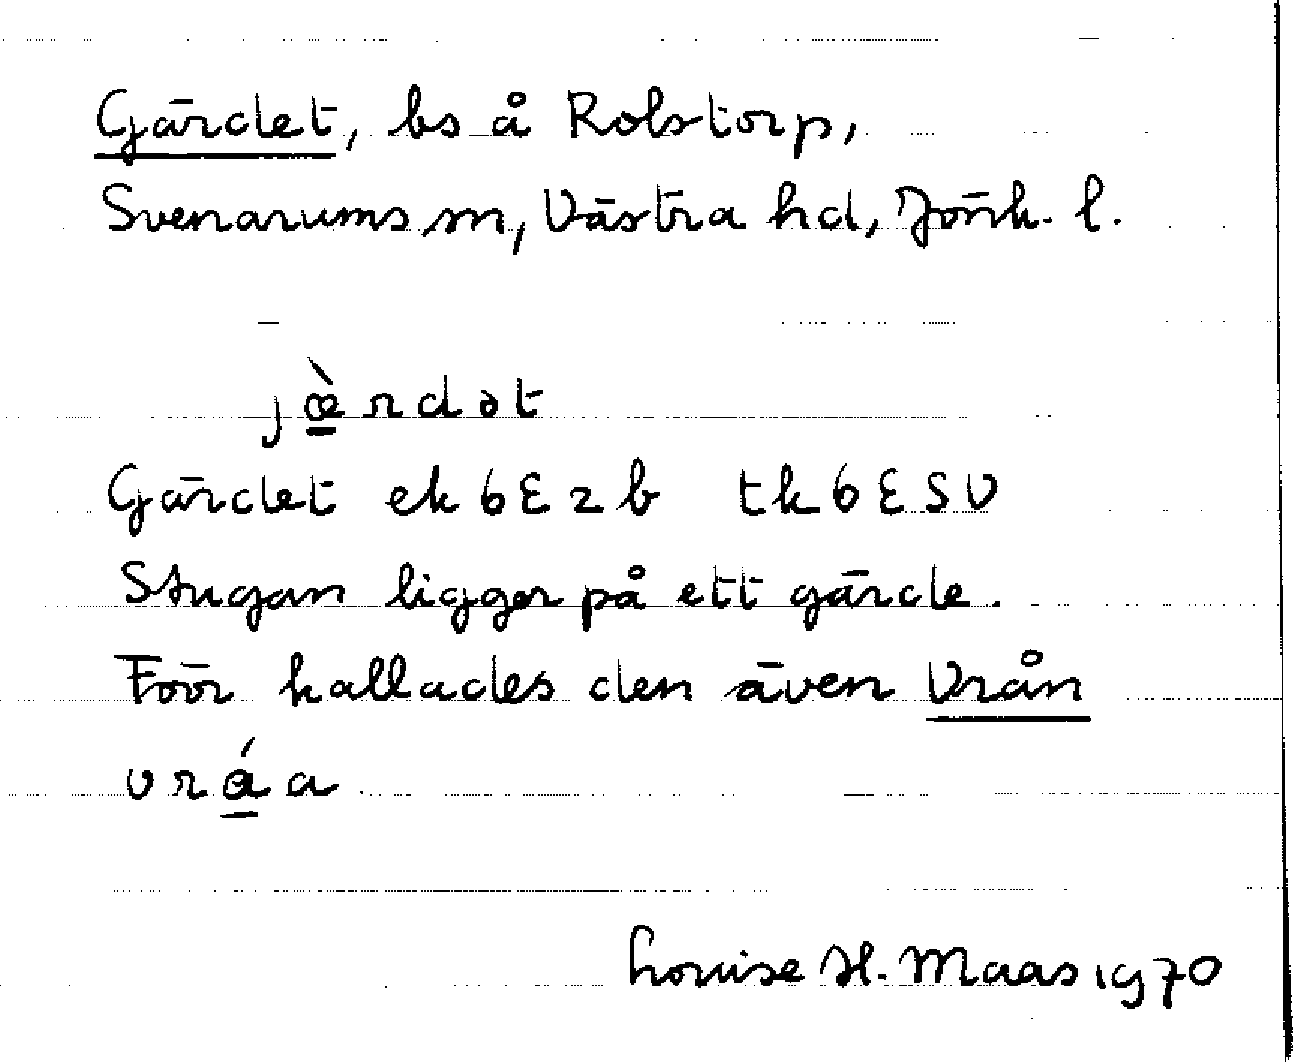 Gärdet, bs å Rolstorp,
Svenarums sn, Västra hd, Jönk. l.
jæ̀rdət
Gärdet ek 6E2b tk 6ESV
Stugan ligger på ett gärde.
Förr kallades den även Vrån
vráa
Louise H. Maas 1970